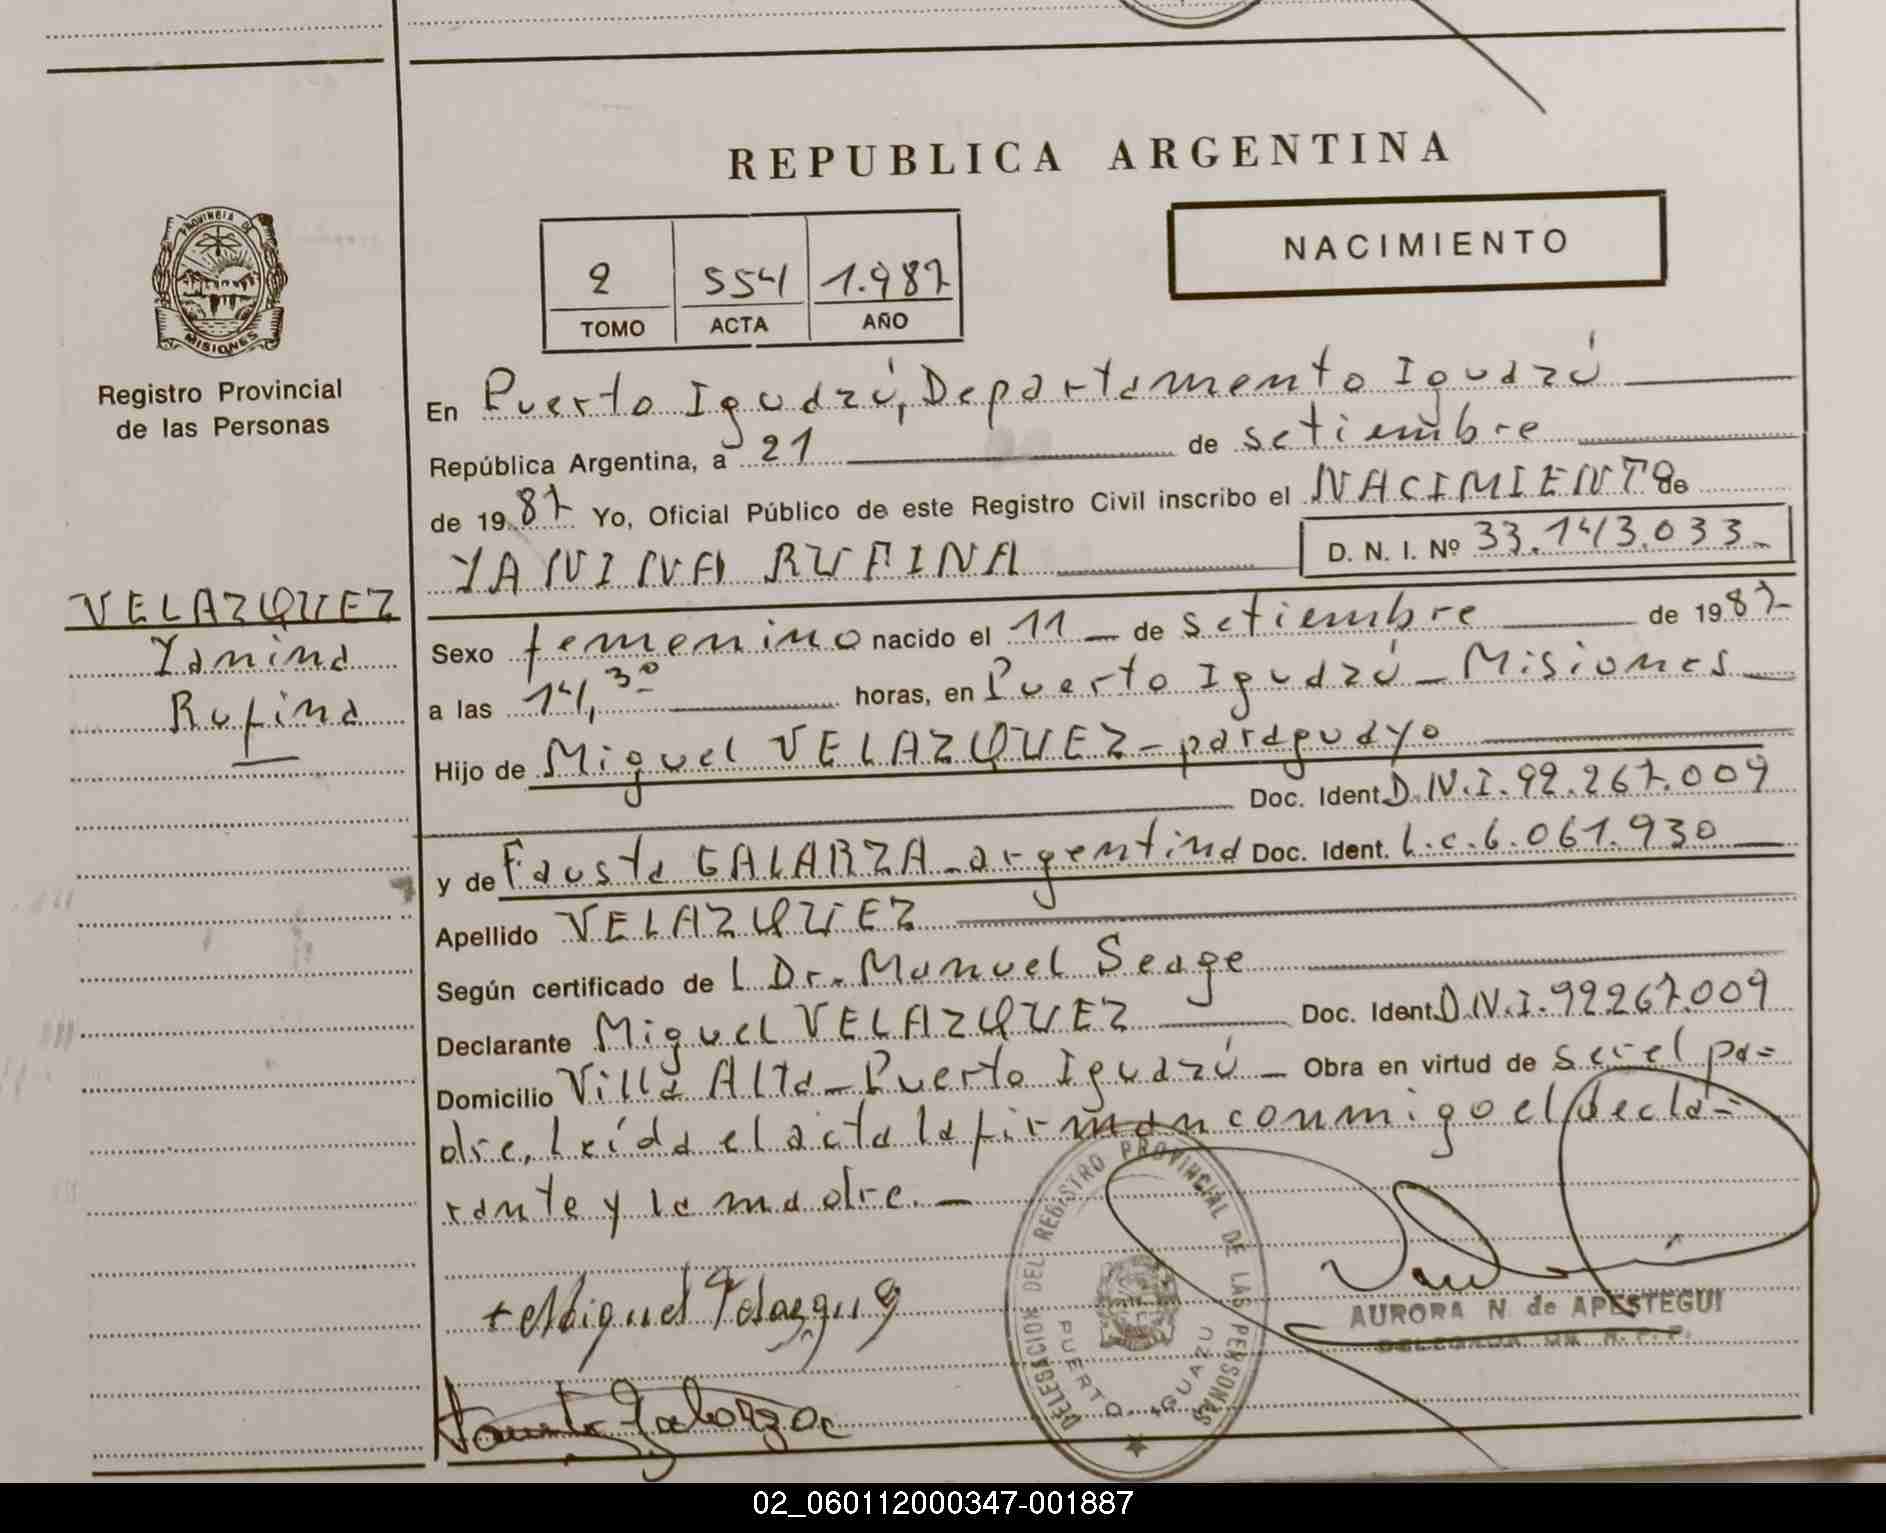 REPUBLICA ARGENTINA
PROVINCIA DE
MISIONES
Registro Provincial
de las Personas
2 554 1.987
TOMO ACTA AÑO
NACIMIENTO
En Puerto Iguazú, Departamento Iguazú
República Argentina, a 21 de setiembre
de 1987 Yo, Oficial Público de este Registro Civil inscribo el NACIMIENTO de
YANINA RUFINA D. N. I. Nº 33.143.033-
VELAZQUEZ
Yanina
Rufina
Sexo femenino nacido el 11 de setiembre de 1987-
a las 14,30 horas, en Puerto Iguazú - Misiones
Hijo de Miguel VELAZQUEZ - paraguayo
Doc. Ident. D.N.I. 92.267.009
y de Fausta GALARZA - argentina Doc. Ident. L.c. 6.061.930
Apellido VELAZQUEZ
Según certificado de l Dr. Manuel Seage
Declarante Miguel VELAZQUEZ Doc. Ident. D.N.I. 92267.009
Domicilio Villa Alta - Puerto Iguazú - Obra en virtud de ser el pa=
dre, Leída el acta la firman conmigo el decla=
rante y la madre. -
DELEGACION DEL REGISTRO PROVINCIAL DE LAS PERSONAS
PUERTO IGUAZU
Miguel Velazque
AURORA N. de APESTEGUI
DELEGADA DE R. P. P.
Fausta Galarza
02_060112000347-001887